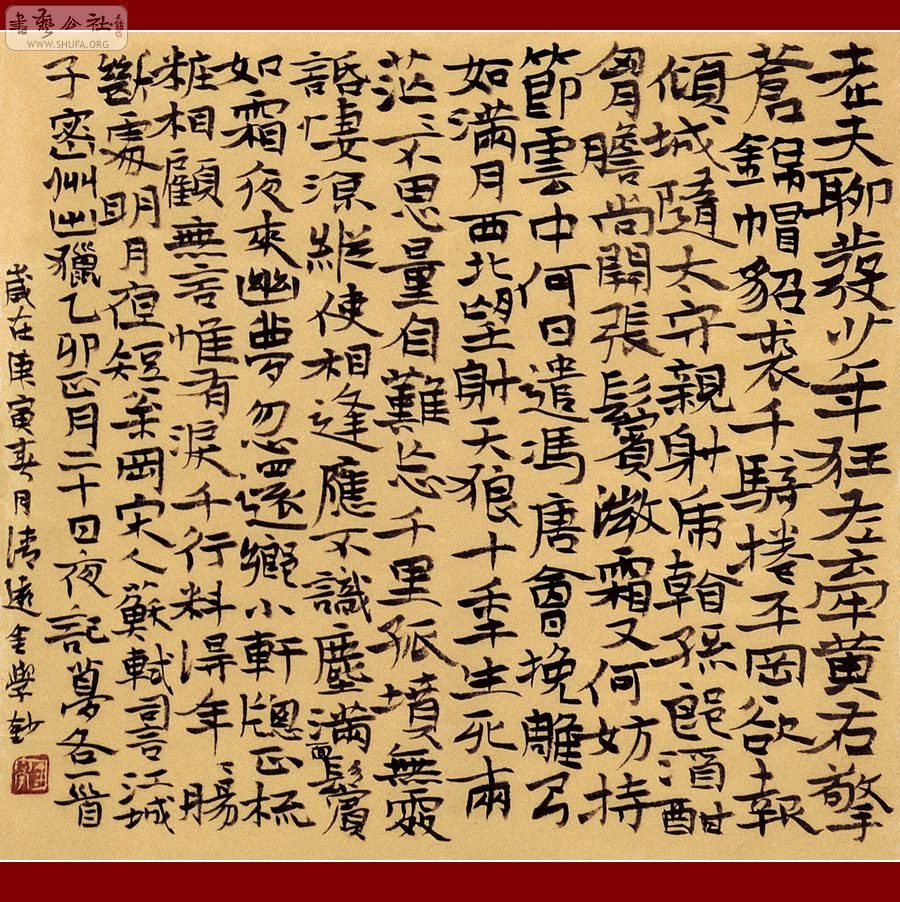 書藝公社
WWW.SHUFA.ORG
老夫聊發少年狂左牽黃右擎
蒼錦帽貂裘千騎捲平岡欲報
傾城隨太守親射虎看孫郎酒酣
胷膽尚開張鬢微霜又何妨持
節雲中何日遣馮唐會挽雕弓
如滿月西北望射天狼十年生死兩
茫〻不思量自難忘千里孤墳無處
話悽涼縱使相逢應不識塵滿面鬢
如霜夜來幽夢忽還鄉小軒窗正梳
粧相顧無言惟有淚千行料得年〻腸
斷處明月夜短松岡宋人蘇軾詞江城
子密州出獵乙卯正月二十日夜記夢各一首
歲在庚寅春月清遠金學鈔